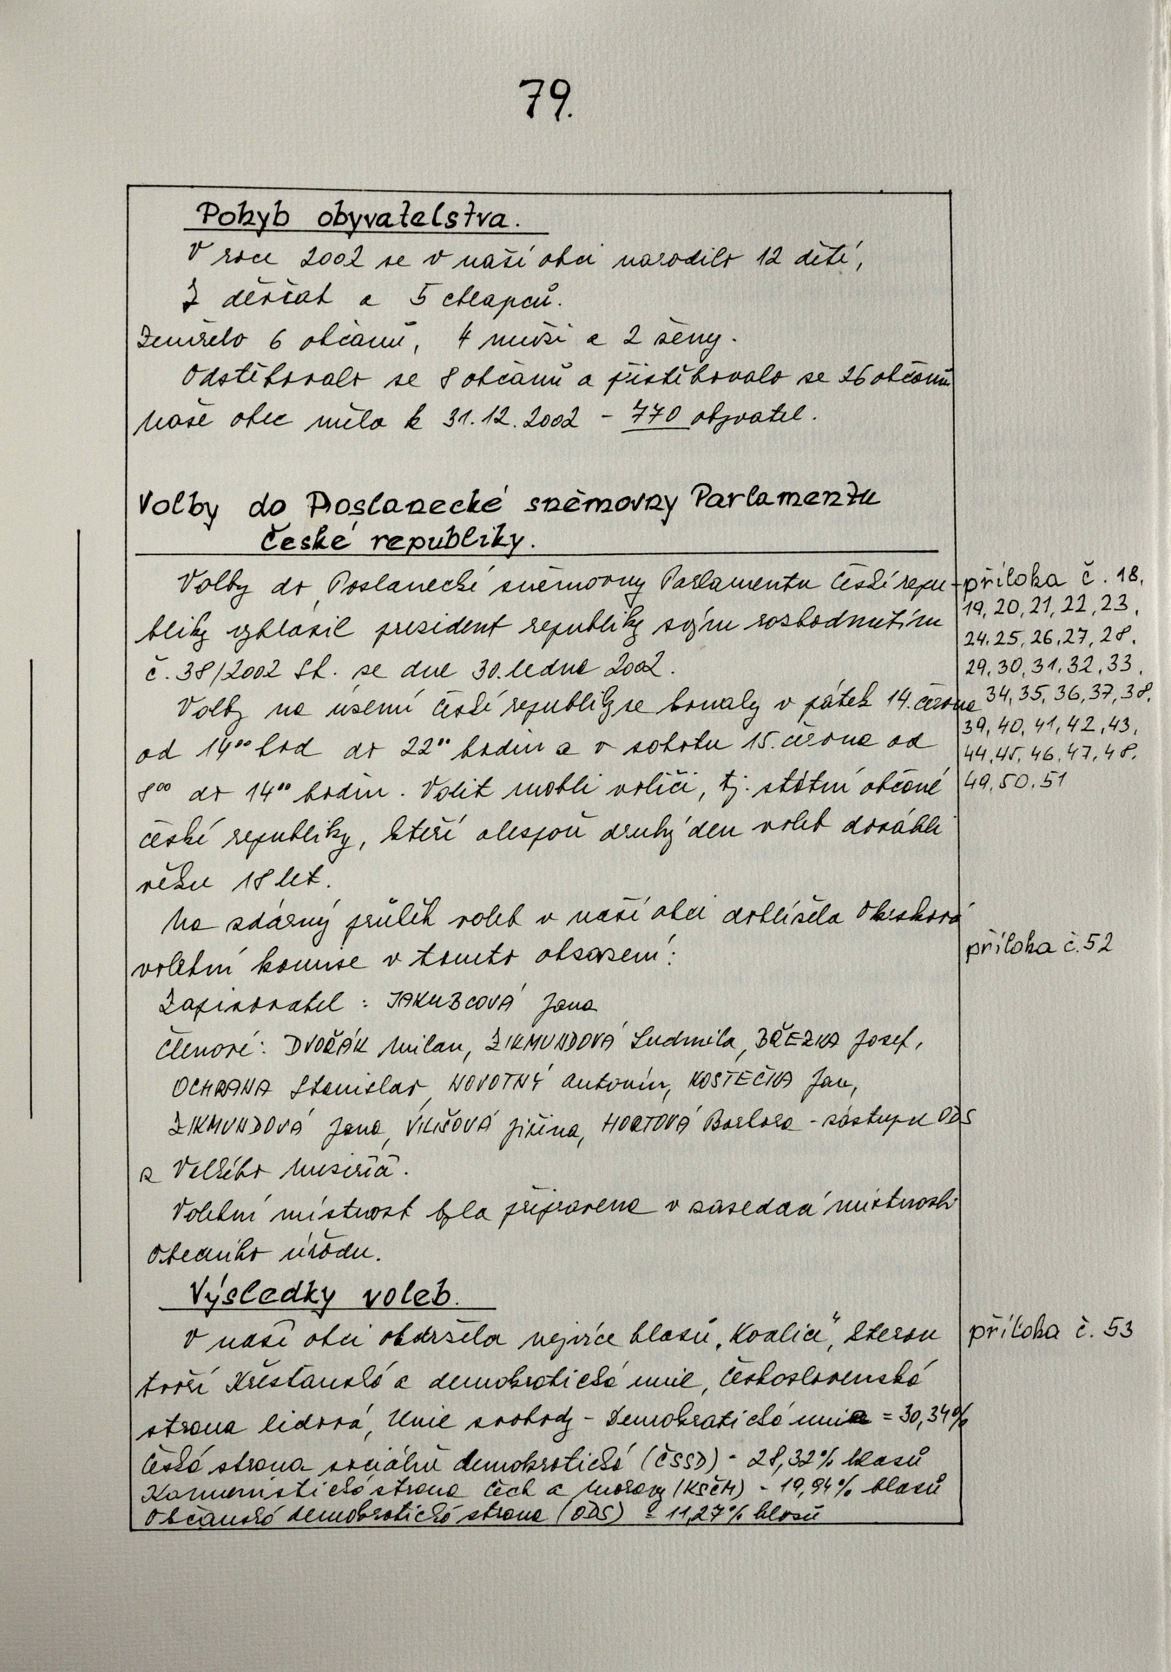 79.
Pohyb obyvatelstva.
V roce 2002 se v naší obci narodilo 12 dětí,
7 děvčat a 5 chlapců.
Zemřelo 6 občanů, 4 muži a 2 ženy.
Odstěhovalo se 8 občanů a přistěhovalo se 26 občanů
Naše obec měla k 31.12.2002 - 770 obyvatel.
Volby do Poslanecké sněmovny Parlamentu
České republiky.
Volby do Poslanecké sněmovny Parlamentu České repu-
bliky vyhlásil president republiky svým rozhodnutím
č. 38/2002 Sb. se dne 30. ledna 2002.
Volby na území České republiky se konaly v pátek 14. června
od 14⁰⁰ hod do 22⁰⁰ hodin a v sobotu 15. června od
8⁰⁰ do 14⁰⁰ hodin. Volit mohli voliči, tj. státní občané
České republiky, kteří alespoň druhý den voleb dosáhli
věku 18 let.
příloha č. 18,
19, 20, 21, 22, 23,
24, 25, 26, 27, 28,
29, 30, 31, 32, 33,
34, 35, 36, 37, 38,
39, 40, 41, 42, 43,
44, 45, 46, 47, 48,
49, 50, 51
Na zdárný průběh voleb v naší obci dohlížela Okrsková
volební komise v tomto obsazení:
příloha č. 52
Zapisovatel: JAKUBCOVÁ Jana
Členové: DVOŘÁK Milan, ZIKMUNDOVÁ Ludmila, BŘEZKA Josef,
OCHRANA Stanislav, NOVOTNÝ Antonín, KOSTEČKA Jan,
ZIKMUNDOVÁ Jana, VILIŠOVÁ Jiřina, HORTOVÁ Barbora - zástupce ODS
z Velkého Meziříčí.
Volební místnost byla připravena v zasedací místnosti
Obecního úřadu.
Výsledky voleb.
V naší obci obdržela nejvíce hlasů „Koalice", kterou
tvoří Křesťanská a demokratická unie, Československá
strana lidová, Unie svobody - Demokratická unie = 30,34%
Česká strana sociálně demokratická (ČSSD) - 28,32% hlasů
Komunistická strana Čech a Moravy (KSČM) - 19,94% hlasů
Občanská demokratická strana (ODS) = 11,27% hlasů
příloha č. 53